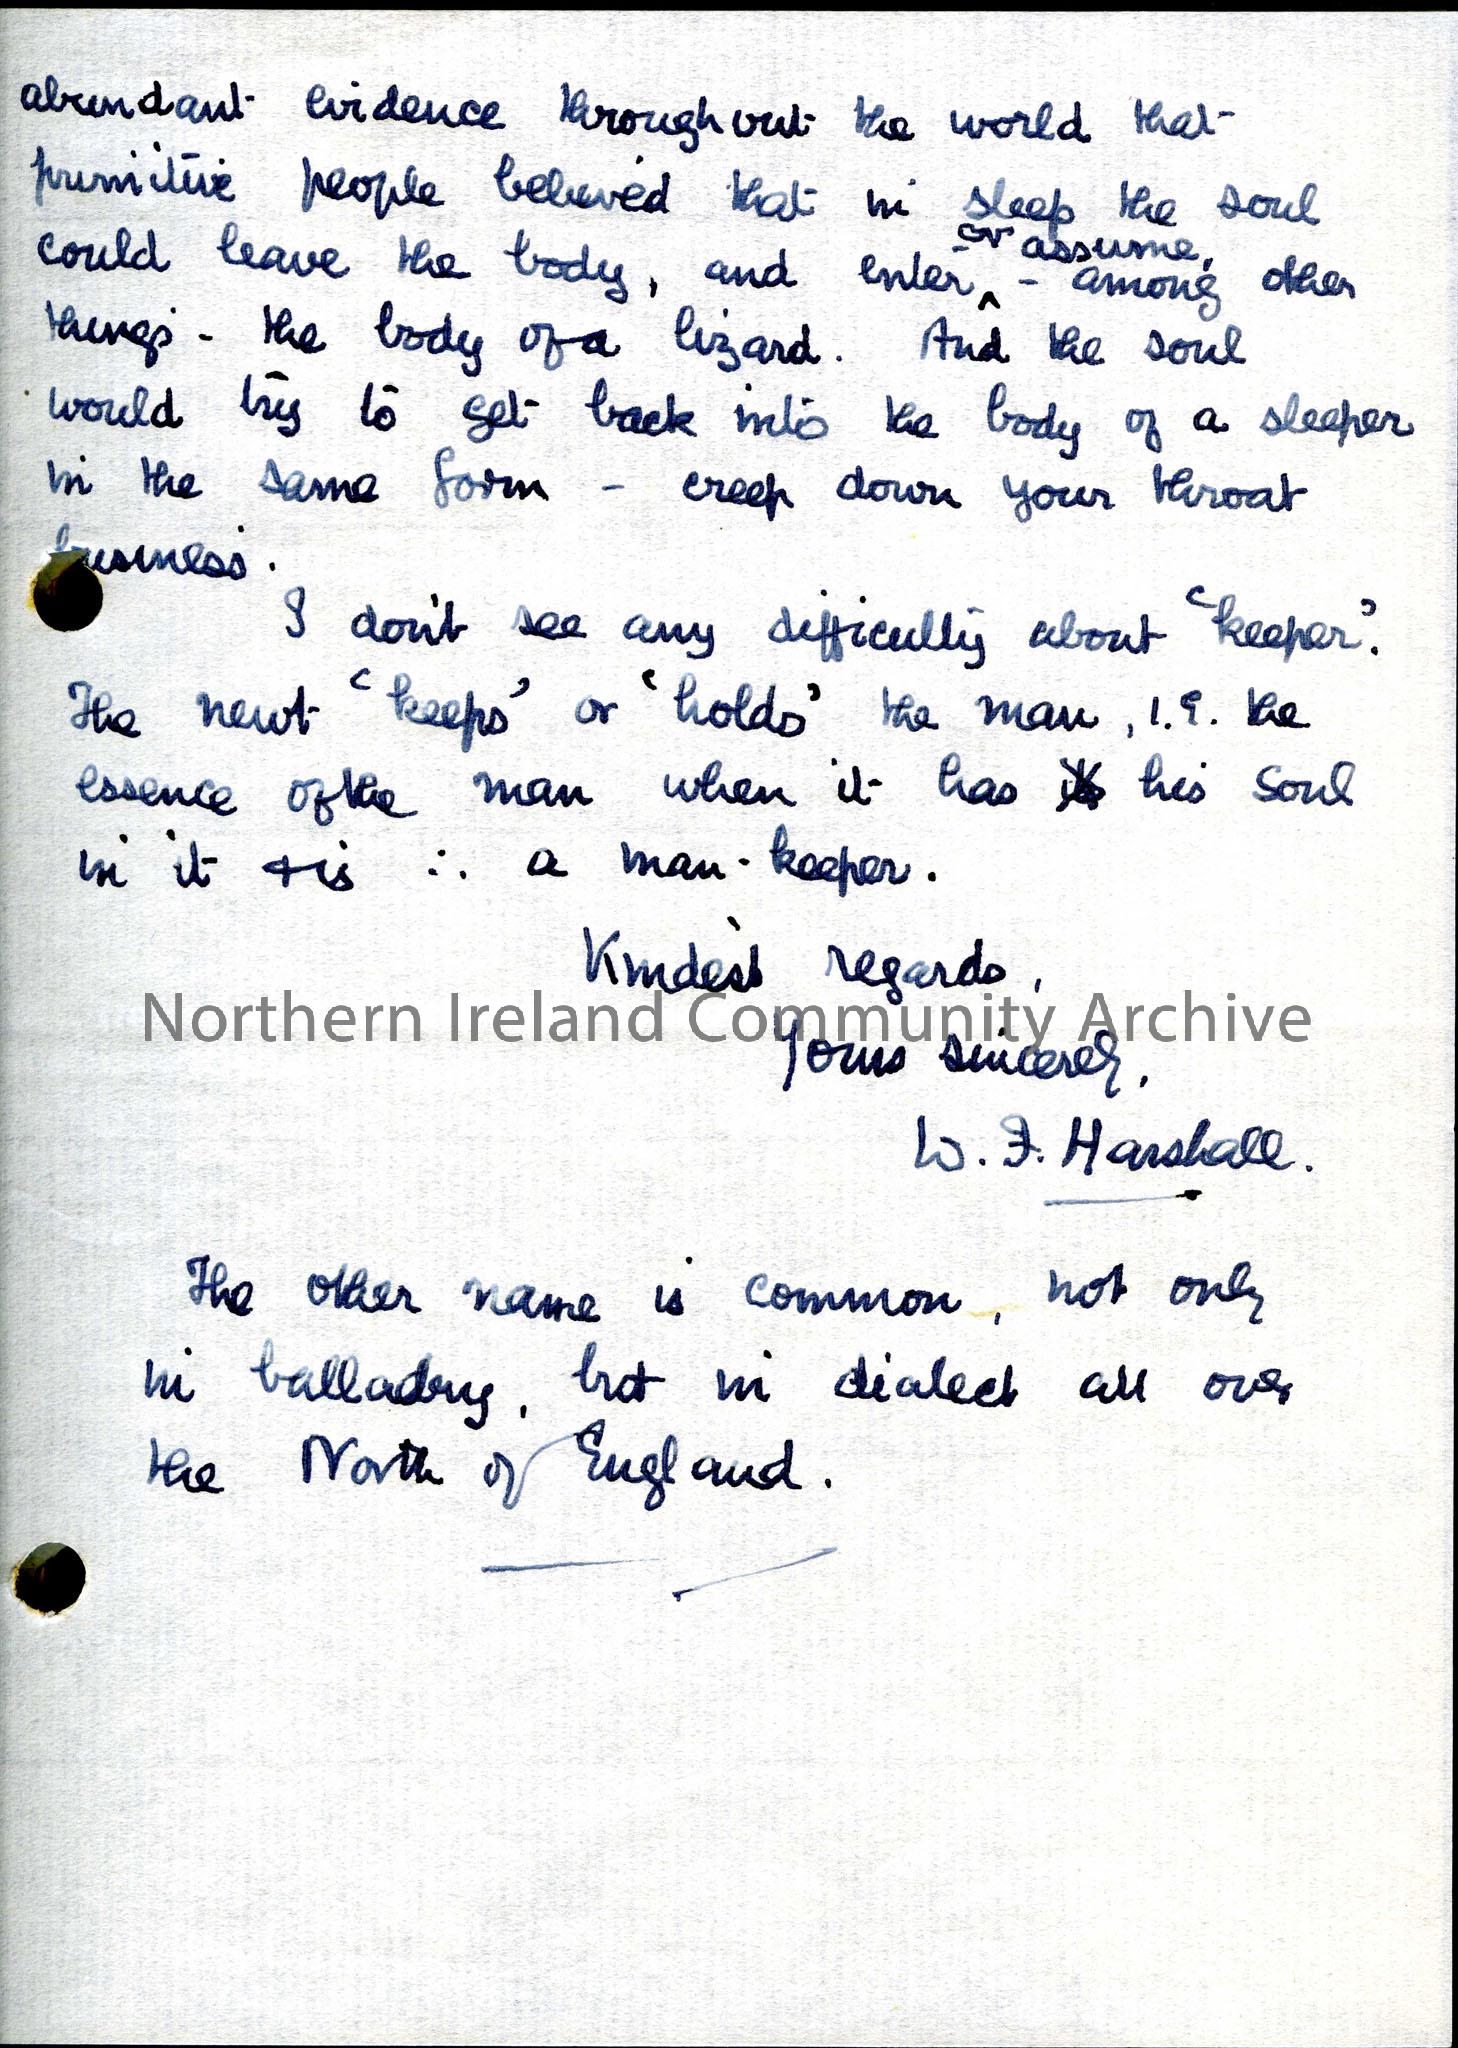 abundant evidence throughout the world that
primitive people believed that in sleep the soul
could leave the body, and enter, - or assume, - among other
things - the body of a lizard. And the soul
would try to get back into the body of a sleeper
in the same form - creep down your throat
business.
I don't see any difficulty about 'keeper'.
The newt 'keeps' or 'holds' the man, i.e. the
essence of the man when it has his soul
in it & is ∴ a man-keeper.
Kindest regards,
Northern Ireland Community Archive
Yours sincerely,
W. F. Marshall.
The other name is common, not only
in balladry, but in dialect all over
the North of England.